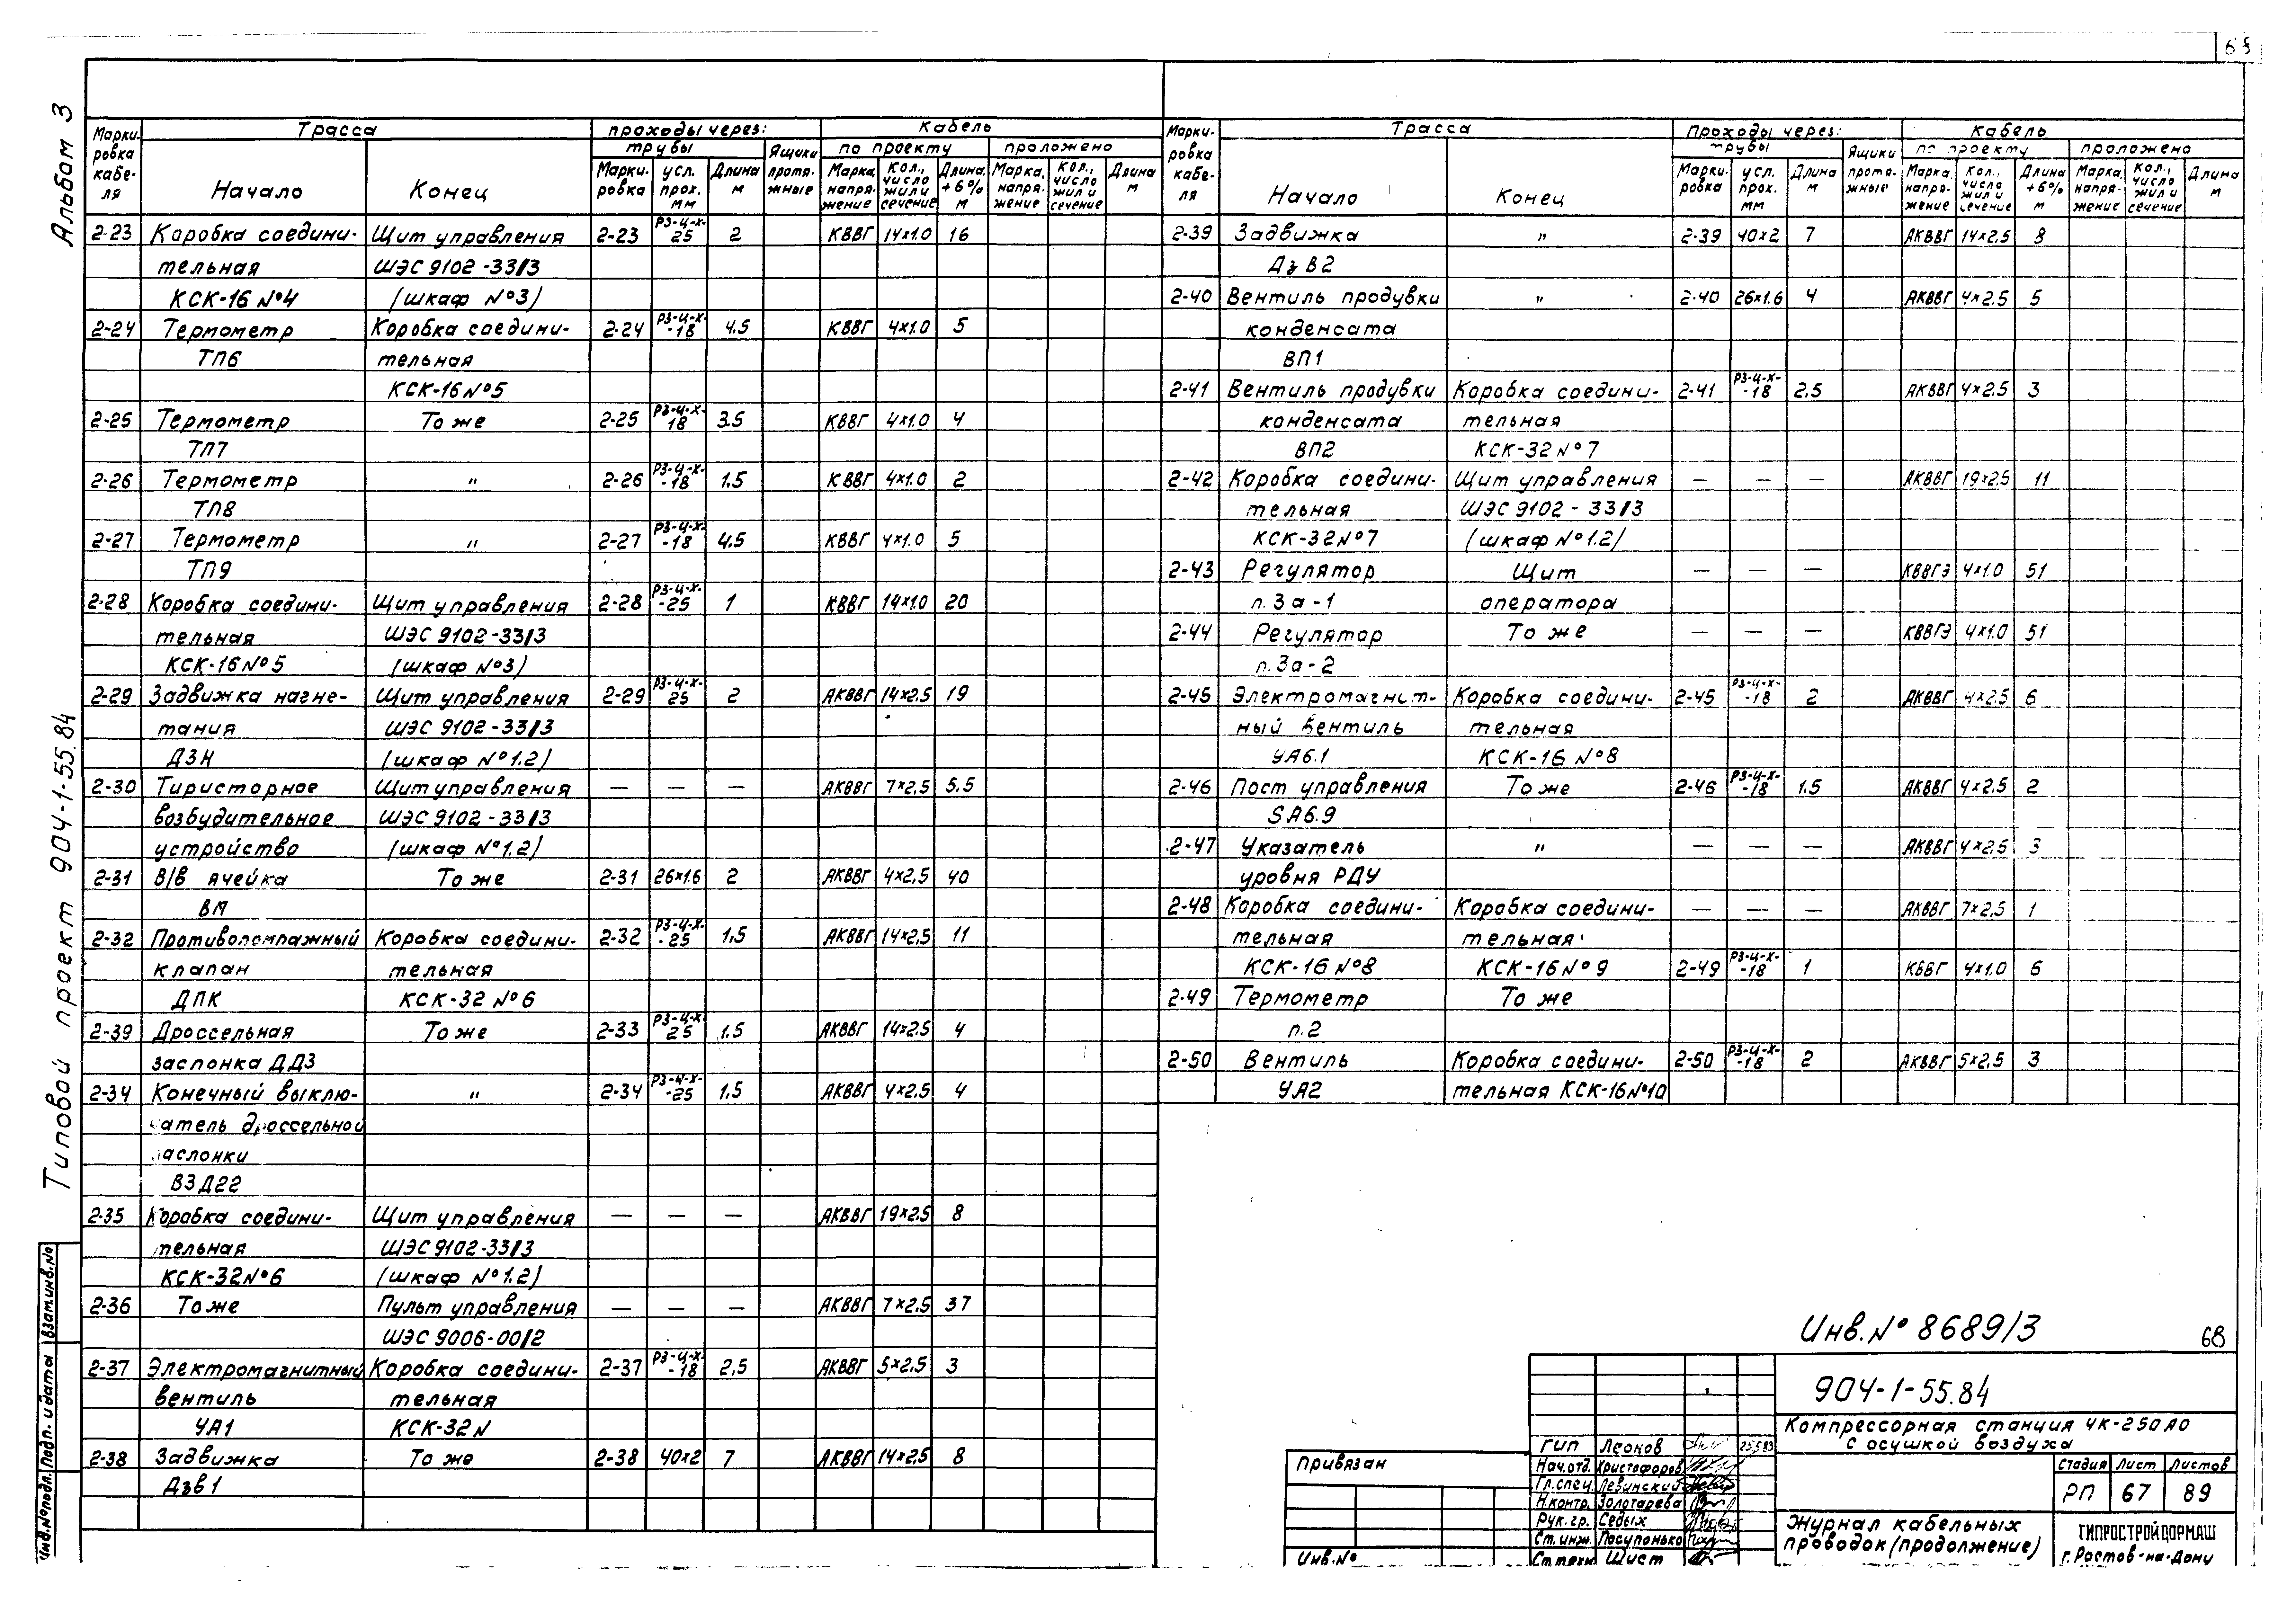 Альбом 3
Типовой проект 904-1-55.84
Марки-ровка кабе-ля | Трасса | проходы через: | Кабель
трубы | Ящики протя-жные | по проекту | проложено
Начало | Конец | Марки-ровка | усл. прох. мм | Длина м | Марка, напря-жение | Кол., число жил и сечение | Длина +6% м | Марка, напря-жение | Кол., число жил и сечение | Длина м
2-23 Коробка соедини- Щит управления 2-23 РЗ-Ц-Х-25 2 КВВГ 14×1.0 16
тельная ШЭС 9102-33/3
КСК-16 №4 (шкаф №3)
2-24 Термометр Коробка соедини- 2-24 РЗ-Ц-Х-18 4.5 КВВГ 4×1.0 5
ТП6 тельная
КСК-16 №5
2-25 Термометр То же 2-25 РЗ-Ц-Х-18 3.5 КВВГ 4×1.0 4
ТП7
2-26 Термометр " 2-26 РЗ-Ц-Х-18 1.5 КВВГ 4×1.0 2
ТП8
2-27 Термометр " 2-27 РЗ-Ц-Х-18 4.5 КВВГ 4×1.0 5
ТП9
2-28 Коробка соедини- Щит управления 2-28 РЗ-Ц-Х-25 1 КВВГ 14×1.0 20
тельная ШЭС 9102-33/3
КСК-16 №5 (шкаф №3)
2-29 Задвижка нагне- Щит управления 2-29 РЗ-Ц-Х-25 2 АКВВГ 14×2.5 19
тания ШЭС 9102-33/3
ДЗН (шкаф №1.2)
2-30 Тиристорное Щит управления — — — АКВВГ 7×2.5 5.5
возбудительное ШЭС 9102-33/3
устройство (шкаф №1.2)
2-31 В/В ячейка То же 2-31 26×1.6 2 АКВВГ 4×2.5 40
ВМ
2-32 Противопомпажный Коробка соедини- 2-32 РЗ-Ц-Х-25 1.5 АКВВГ 14×2.5 11
клапан тельная
ДПК КСК-32 №6
2-39 Дроссельная То же 2-33 РЗ-Ц-Х-25 1.5 АКВВГ 14×2.5 4
заслонка ДДЗ
2-34 Конечный выклю- " 2-34 РЗ-Ц-Х-25 1.5 АКВВГ 4×2.5 4
чатель дроссельной
заслонки
ВЗД22
2-35 Коробка соедини- Щит управления — — — АКВВГ 19×2.5 8
тельная ШЭС 9102-33/3
КСК-32 №6 (шкаф №1.2)
2-36 То же Пульт управления — — — АКВВГ 7×2.5 37
ШЭС 9006-00/2
2-37 Электромагнитный Коробка соедини- 2-37 РЗ-Ц-Х-18 2.5 АКВВГ 5×2.5 3
вентиль тельная
УА1 КСК-32 N
2-38 Задвижка То же 2-38 40×2 7 АКВВГ 14×2.5 8
Дзв1
Марки-ровка кабе-ля | Трасса | Проходы через: | Кабель
трубы | Ящики протя-жные | по проекту | проложено
Начало | Конец | Марки-ровка | усл. прох. мм | Длина м | Марка, напря-жение | Кол., число жил и сечение | Длина +6% м | Марка, напря-жение | Кол., число жил и сечение | Длина м
2-39 Задвижка " 2-39 40×2 7 АКВВГ 14×2.5 8
ДзВ2
2-40 Вентиль продувки " 2-40 26×1.6 4 АКВВГ 4×2.5 5
конденсата
ВП1
2-41 Вентиль продувки Коробка соедини- 2-41 РЗ-Ц-Х-18 2.5 АКВВГ 4×2.5 3
конденсата тельная
ВП2 КСК-32 №7
2-42 Коробка соедини- Щит управления — — — АКВВГ 19×2.5 11
тельная ШЭС 9102-33/3
КСК-32 №7 (шкаф №1.2)
2-43 Регулятор Щит — — — КВВГЭ 4×1.0 51
п. 3а-1 оператора
2-44 Регулятор То же — — — КВВГЭ 4×1.0 51
п. 3а-2
2-45 Электромагнит- Коробка соедини- 2-45 РЗ-Ц-Х-18 2 АКВВГ 4×2.5 6
ный вентиль тельная
УА6.1 КСК-16 №8
2-46 Пост управления То же 2-46 РЗ-Ц-Х-18 1.5 АКВВГ 4×2.5 2
SА6.9
2-47 Указатель " — — — АКВВГ 4×2.5 3
уровня РДУ
2-48 Коробка соедини- Коробка соедини- — — — АКВВГ 7×2.5 1
тельная тельная
КСК-16 №8 КСК-16 №9 2-49 РЗ-Ц-Х-18 1 КВВГ 4×1.0 6
2-49 Термометр То же
п. 2
2-50 Вентиль Коробка соедини- 2-50 РЗ-Ц-Х-18 2 АКВВГ 5×2.5 3
УА2 тельная КСК-16 №10
Инв. № 8689/3 68
904-1-55.84
Компрессорная станция ЧК-250 АО
с осушкой воздуха
Гип Леонов
Нач.отд. Христофоров
Гл.спец. Левинский
Н.контр. Золотарева
Рук.гр. Седых
Ст.инж. Посупонько
Ст.техн. Шист
Стадия Лист Листов
РП 67 89
Журнал кабельных
проводок (продолжение)
ГИПРОСТРОЙДОРМАШ
г. Ростов-на-Дону
Привязан
Инв. №
Инв.№подл. Подп. и дата Взам.инв.№